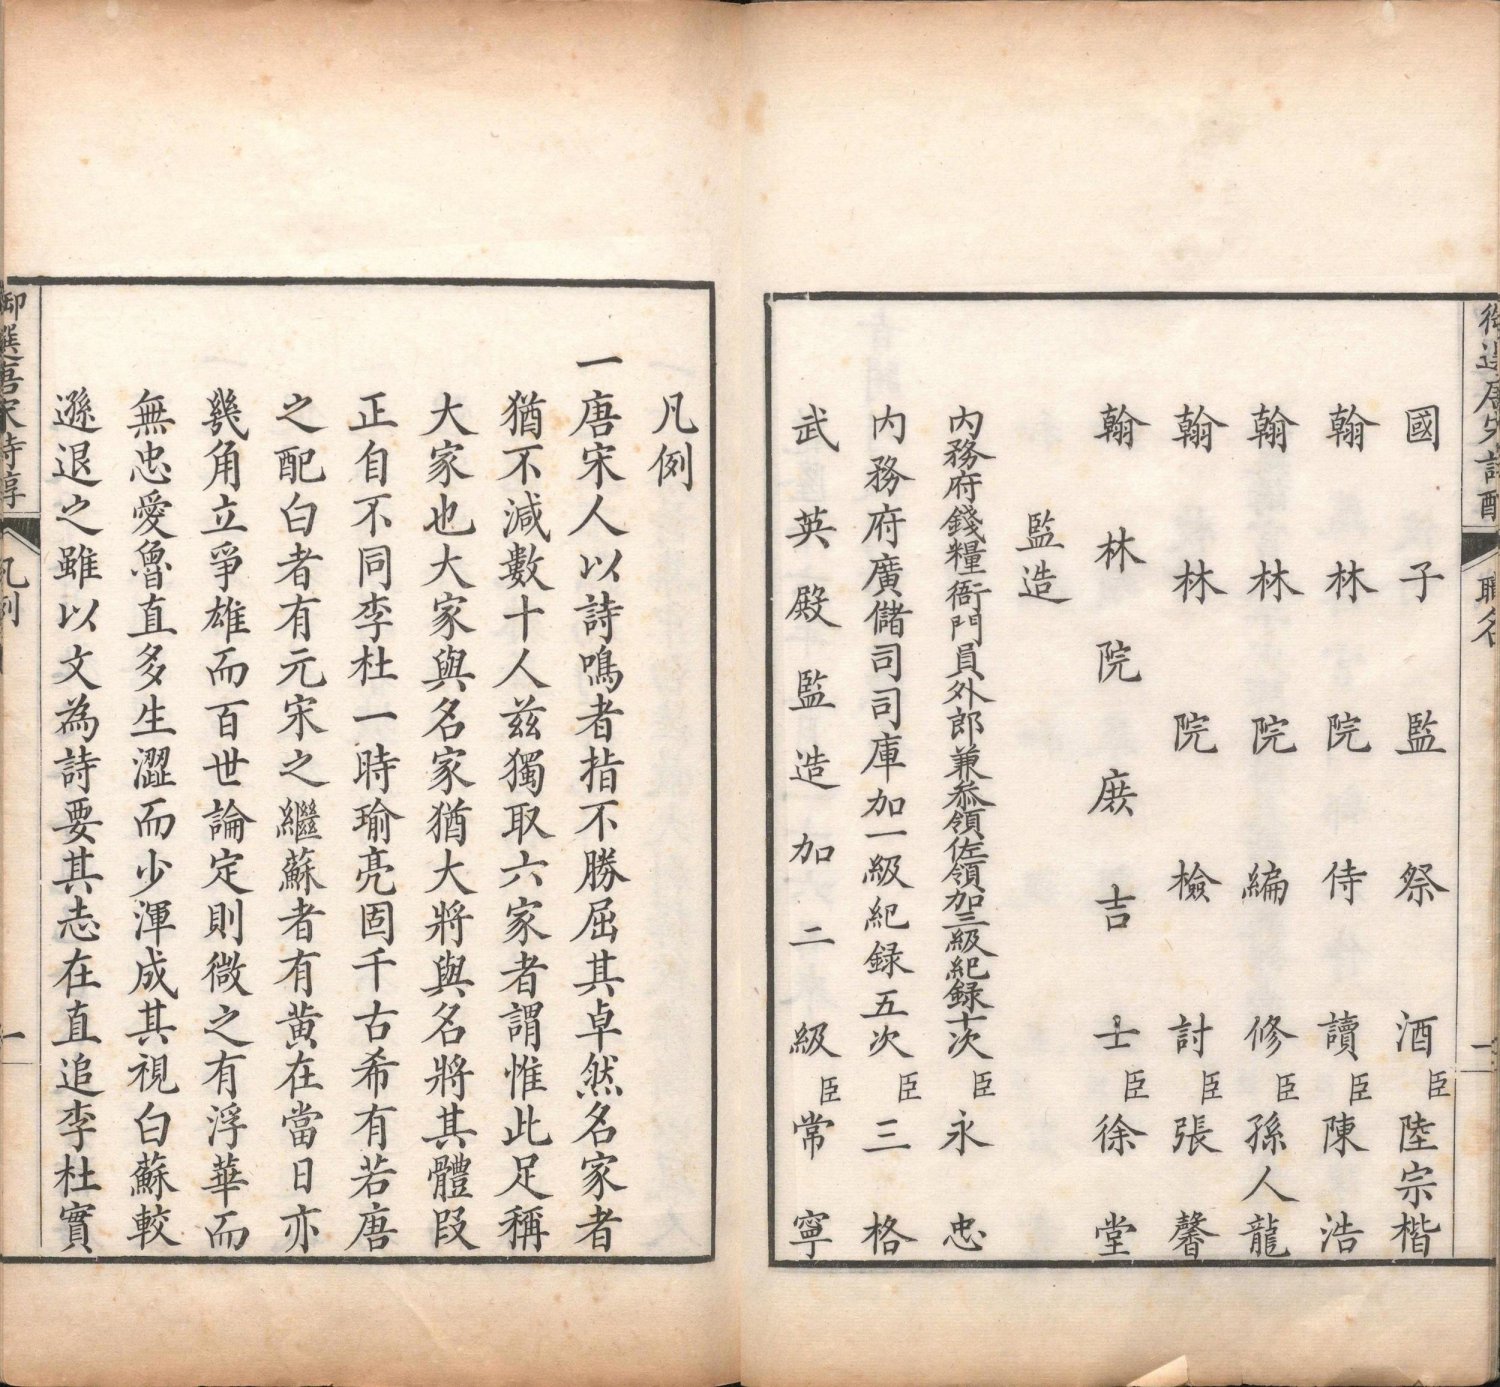 國子監祭酒臣陸宗楷
翰林院侍讀臣陳浩
翰林院編修臣孫人龍
翰林院檢討臣張馨
翰林院庶吉士臣徐堂
監造
內務府錢糧衙門員外郎兼叅領佐領加三級紀録十次臣永忠
內務府廣儲司司庫加一級紀録五次臣三格
武英殿監造加二級臣常寧
凡例
一唐宋人以詩鳴者指不勝屈其卓然名家者
猶不減數十人兹獨取六家者謂惟此足稱
大家也大家與名家猶大將與名將其體段
正自不同李杜一時瑜亮固千古希有若唐
之配白者有元宋之繼蘇者有黄在當日亦
幾角立爭雄而百世論定則微之有浮華而
無忠愛魯直多生澀而少渾成其視白蘇較
遜退之雖以文為詩要其志在直追李杜實
御選唐宋詩醇
凡例
一